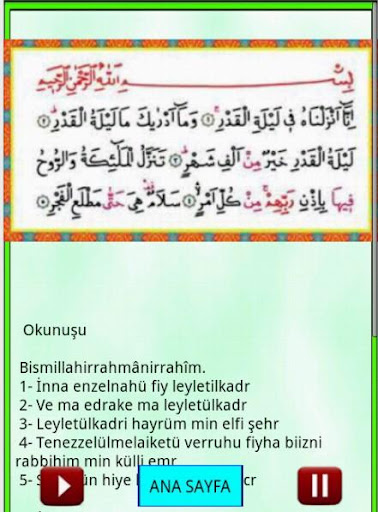 بِسْمِ اللّٰهِ الرَّحْمٰنِ الرَّحِيمِ
اِنَّٓا اَنْزَلْنَاهُ فِى لَيْلَةِ الْقَدْرِ ۝ وَمَٓا اَدْرٰيكَ مَا لَيْلَةُ الْقَدْرِ ۝
لَيْلَةُ الْقَدْرِ خَيْرٌ مِنْ اَلْفِ شَهْرٍ ۝ تَنَزَّلُ الْمَلٰٓئِكَةُ وَالرُّوحُ
فِيهَا بِاِذْنِ رَبِّهِمْ مِنْ كُلِّ اَمْرٍ ۝ سَلَامٌ هِىَ حَتّٰى مَطْلَعِ الْفَجْرِ ۝
Okunuşu
Bismillahirrahmânirrahîm.
1- İnna enzelnahü fiy leyletilkadr
2- Ve ma edrake ma leyletülkadr
3- Leyletülkadri hayrüm min elfi şehr
4- Tenezzelülmelaiketü verruhu fiyha biizni
rabbihim min külli emr
5- S ün hiye cr
ANA SAYFA